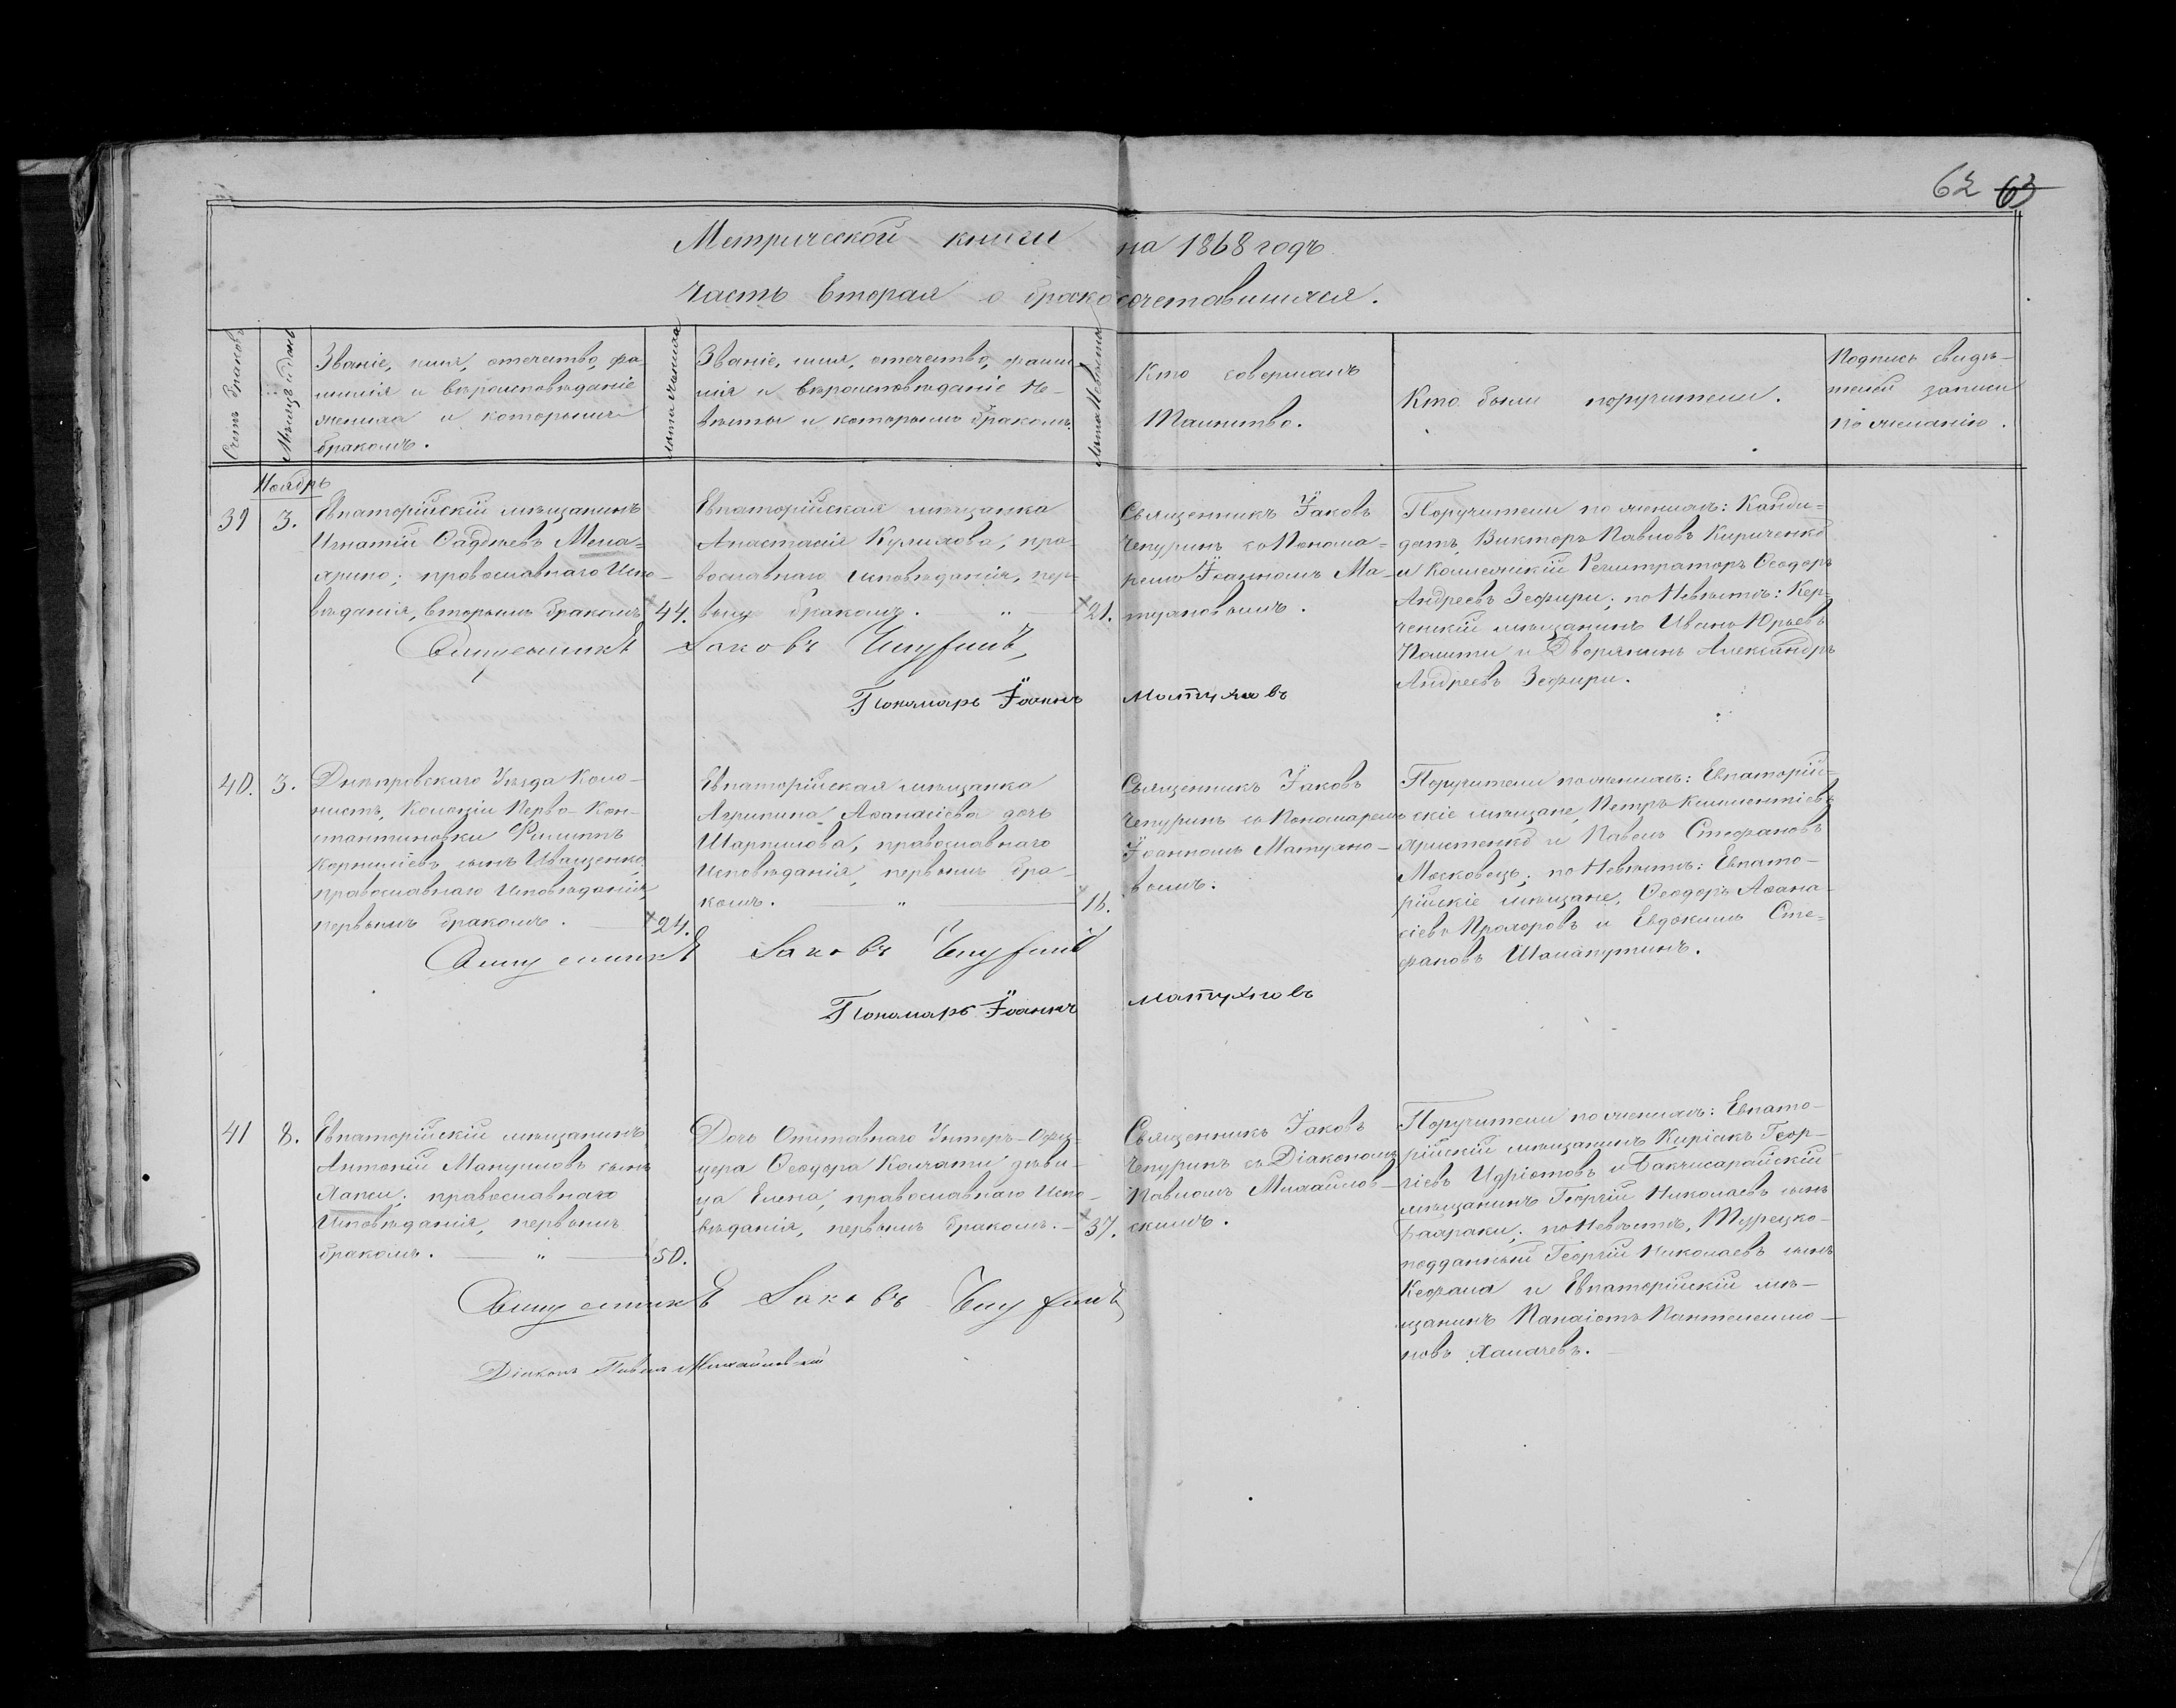 62 63
Метрической книги на 1868 годъ
часть вторая о бракосочетавшихся.
Счетъ браковъ
Мѣсяцъ и день
Званіе, имя, отечество, фа-
милія и вѣроисповѣданіе
жениха и которымъ
бракомъ.
Лѣта жениха
Званіе, имя, отечество, фами-
лія и вѣроисповѣданіе не-
вѣсты и которымъ бракомъ.
Лѣта невѣсты
Кто совершалъ
Таинство.
Кто были поручители.
Подпись свидѣ-
телей записи
по желанію.
Ноябрь
39
3.
Евпаторійскій мѣщанинъ
Игнатій Фаддѣевъ Мела-
хрино; православнаго Испо-
вѣданія, вторымъ бракомъ
44.
Евпаторійская мѣщанка
Анастасія Куликова, пра-
вославнаго исповѣданія, пер-
вымъ бракомъ. „
21.
Священникъ Іаковъ
Чепуринъ со Понома-
ремъ Іоанномъ Ма-
тухновымъ.
Поручители по женихѣ: Канди-
датъ Викторъ Павловъ Кириченко
и Коллежскій Регистраторъ Ѳеодоръ
Андреевъ Зефири; по Невѣстѣ: Кер-
ченскій мѣщанинъ Иванъ Юрьевъ
Полити и Дворянинъ Александръ
Андреевъ Зефири.
Священникъ Іаковъ Чепуринъ
Пономарь Іоаннъ Матухновъ
40.
3.
Днѣпровскаго Уѣзда Коло-
нистъ, Колоніи Перво-Кон-
стантиновки Филиппъ
Корниліевъ сынъ Иващенко,
православнаго Исповѣданія,
первымъ бракомъ.
24.
Евпаторійская мѣщанка
Агрипина Аѳанасіева дочь
Шарпилова, православнаго
Исповѣданія, первымъ бра-
комъ. „
16.
Священникъ Іаковъ
Чепуринъ съ Пономаремъ
Іоанномъ Матухно-
вымъ.
Поручители по женихѣ: Евпаторій-
скіе мѣщане, Петръ Климентіевъ
Христенко и Павелъ Стефановъ
Московецъ; по Невѣстѣ: Евпато-
рійскіе мѣщане, Ѳеодоръ Аѳана-
сіевъ Прохоровъ и Евдокимъ Сте-
фановъ Шалапутинъ.
Священникъ Іаковъ Чепуринъ
Пономарь Іоаннъ Матухновъ
41
8.
Евпаторійскій мѣщанинъ
Антоній Мануиловъ сынъ
Лапси; православнаго
Исповѣданія, первымъ
бракомъ. „
50.
Дочь Отставнаго Унтеръ-Офи-
цера Ѳеодора Калчати дѣви-
ца Елена, православнаго Испо-
вѣданія, первымъ бракомъ.
37.
Священникъ Іаковъ
Чепуринъ съ Діакономъ
Павломъ Михайлов-
скимъ.
Поручители по женихѣ: Евпато-
рійскій мѣщанинъ Киріакъ Геор-
гіевъ Идріотовъ и Бакчисарайскій
мѣщанинъ Георгій Николаевъ сынъ
Баяраки; по Невѣстѣ, Турецко-
подданный Георгій Николаевъ сынъ
Кефала и Евпаторійскій мѣ-
щанинъ Панаіотъ Пантелеимо-
новъ Халачевъ.
Священникъ Іаковъ Чепуринъ
Діаконъ Павелъ Михайловскій